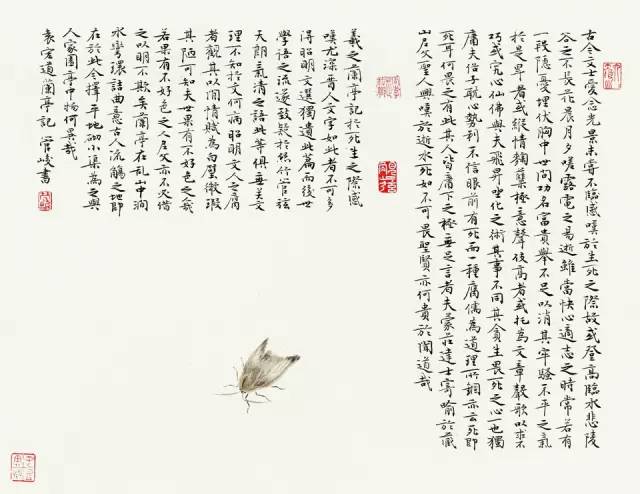 古今文士愛念光景未嘗不臨感嘆於生死之際故或登高臨水悲陵
谷之不長花晨月夕嗟露電之易逝雖當快心適志之時常若有
一段隱憂埋伏胸中世間功名富貴舉不足以消其牢騷不平之氣
於是卑者或縱情麴糵極意聲伎高者或托為文章聲歌以求不
朽或究心仙佛與夫飛昇坐化之術其事不同其貪生畏死之心一也獨
庸夫俗子耽心勢利不信眼前有死而一種腐儒為道理所錮亦云死即
死耳何畏之有此其人皆庸下之極無足言者夫蒙莊達士寄喻於藏
山尼父聖人興嘆於逝水死如不可畏聖賢亦何貴於聞道哉
羲之蘭亭記於死生之際感
嘆尤深晉人文字如此者不可多
得昭明文選獨遺此篇而後世
學語之流遂致疑於絲竹管絃
天朗氣清之語此等俱無關文
理不知於文何病昭明文人之腐
者觀其以閒情賦為白璧微瑕
其陋可知夫世果有不好色之人哉
若果有不好色之人尼父亦不必借
之以明不欺矣蘭亭在亂山中澗
水彎環詰曲意古人流觴之地即
在於此今擇平地砌小渠為之與
人家園亭中物何異哉
袁宏道蘭亭記 管峻書